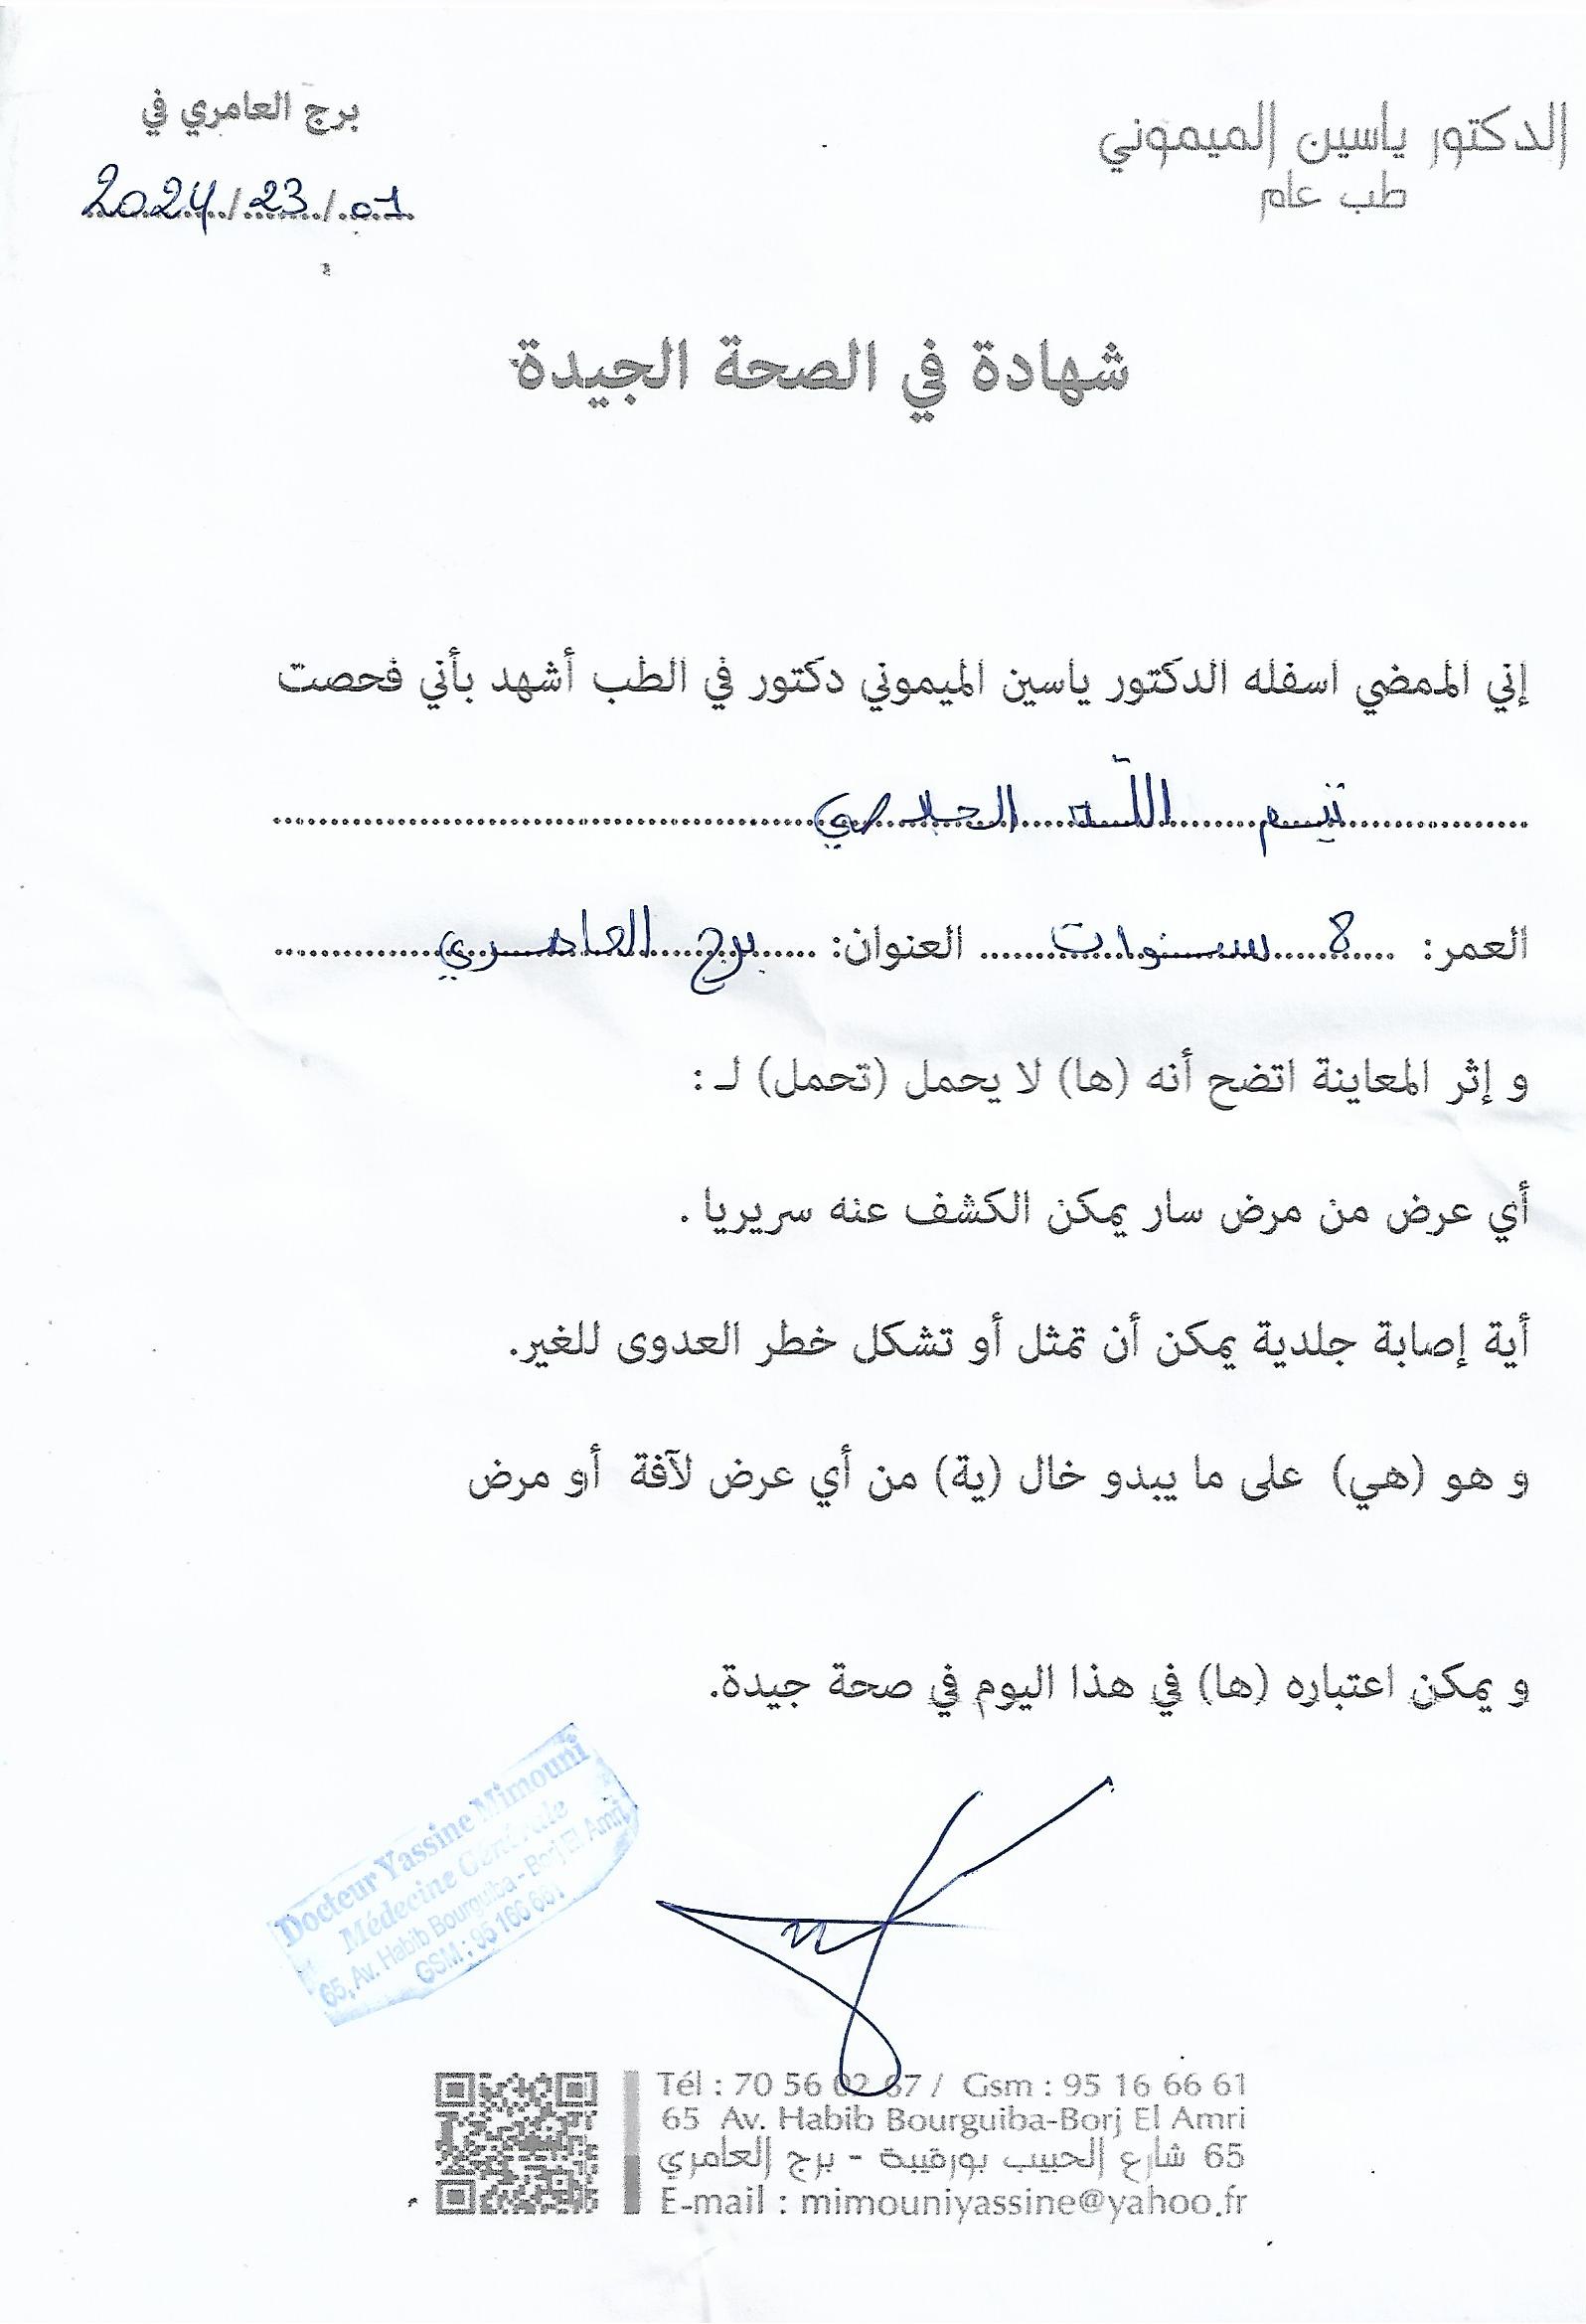 الدكتور ياسين الميموني
طب عام
برج العامري في
2024/23/01
شهادة في الصحة الجيدة
إني الممضي اسفله الدكتور ياسين الميموني دكتور في الطب أشهد بأني فحصت
تيم اللّه
العمر: 8 سنوات العنوان: برج العامري
و إثر المعاينة اتضح أنه (ها) لا يحمل (تحمل) لـ :
أي عرض من مرض سار يمكن الكشف عنه سريريا .
أية إصابة جلدية يمكن أن تمثل أو تشكل خطر العدوى للغير.
و هو (هي) على ما يبدو خال (ية) من أي عرض لآفة أو مرض
و يمكن اعتباره (ها) في هذا اليوم في صحة جيدة.
Docteur Yassine Mimouni
Médecine Générale
65, Av. Habib Bourguiba - Borj El Amri
GSM : 95 166 661
Tél : 70 56 02 67 / Gsm : 95 16 66 61
65 Av. Habib Bourguiba-Borj El Amri
65 شارع الحبيب بورقيبة - برج العامري
E-mail : mimouniyassine@yahoo.fr